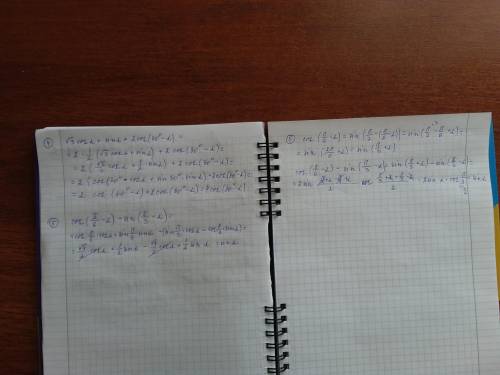 ④ √3 cos α + sin α + 2 cos(30° - α) =
= 2 · 1/2 (√3 cos α + sin α) + 2 cos(30° - α) =
= 2 (√3/2 cos α + 1/2 sin α) + 2 cos(30° - α) =
= 2 (cos 30° cos α + sin 30° sin α) + 2 cos(30° - α) =
= 2 cos(30° - α) + 2 cos(30° - α) = 4 cos(30° - α)
cos(π/6 - α) - sin(π/3 - α) =
= cos π/6 cos α + sin π/6 sin α - (sin π/3 cos α - cos π/3 sin α) =
= √3/2 cos α + 1/2 sin α - √3/2 cos α + 1/2 sin α = sin α
cos(π/6 - α) = sin(π/2 - (π/6 - α)) = sin(π/2 - π/6 + α) =
= sin(2π/6 + α) = sin(π/3 + α)
cos(π/6 - α) - sin(π/3 - α) = sin(π/3 + α) - sin(π/3 - α) =